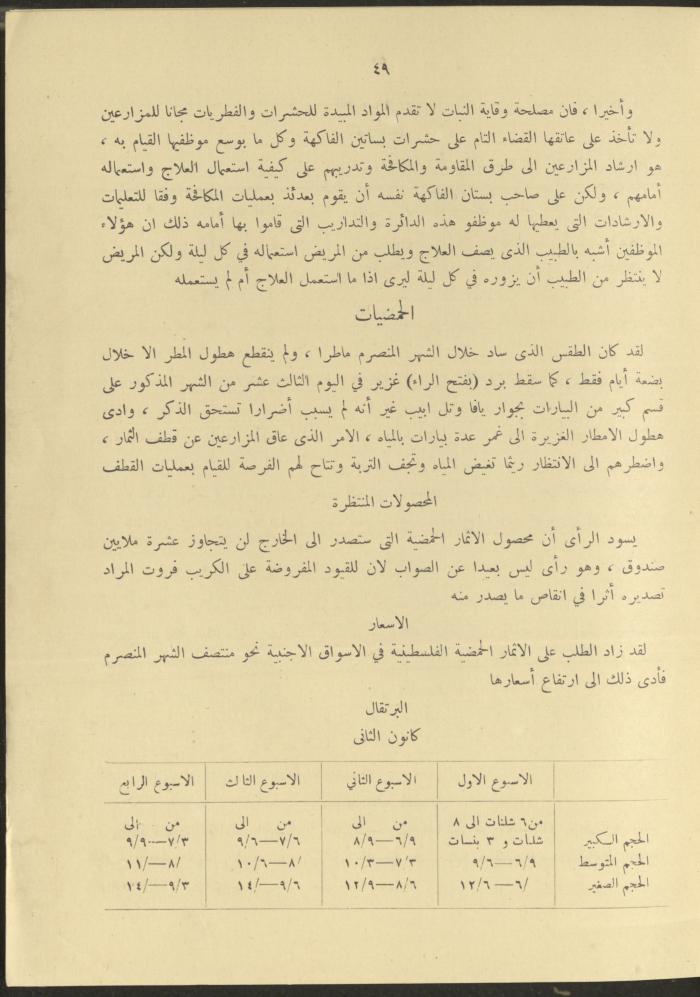 ٤٩
وأخيرا ، فان مصلحة وقاية النبات لا تقدم المواد المبيدة للحشرات والفطريات مجانا للمزارعين
ولا تأخذ على عاتقها القضاء التام على حشرات بساتين الفاكهة وكل ما بوسع موظفيها القيام به ،
هو ارشاد المزارعين الى طرق المقاومة والمكافحة وتدريبهم على كيفية استعمال العلاج واستعماله
أمامهم ، ولكن على صاحب بستان الفاكهة نفسه أن يقوم بعدئذ بعمليات المكافحة وفقا للتعليمات
والارشادات التى يعطيها له موظفو هذه الدائرة والتداريب التى قاموا بها أمامه ذلك ان هؤلاء
الموظفين أشبه بالطبيب الذى يصف العلاج ويطلب من المريض استعماله في كل ليلة ولكن المريض
لا ينتظر من الطبيب أن يزوره في كل ليلة ليرى اذا ما استعمل العلاج أم لم يستعمله
الحمضيات
لقد كان الطقس الذى ساد خلال الشهر المنصرم ماطرا ، ولم ينقطع هطول المطر الا خلال
بضعة أيام فقط ، كما سقط برد (بفتح الراء) غزير في اليوم الثالث عشر من الشهر المذكور على
قسم كبير من البيارات بجوار يافا وتل ابيب غير أنه لم يسبب أضرارا تستحق الذكر ، وادى
هطول الامطار الغزيرة الى غمر عدة بيارات بالمياه ، الامر الذى عاق المزارعين عن قطف الثمار ،
واضطرهم الى الانتظار ريثما تغيض المياه وتجف التربة وتتاح لهم الفرصة للقيام بعمليات القطف
المحصولات المنتظرة
يسود الرأى أن محصول الاثمار الحمضية التى ستصدر الى الخارج لن يتجاوز عشرة ملايين
صندوق ، وهو رأى ليس بعيدا عن الصواب لان للقيود المفروضة على الكريب فروت المراد
تصديره أثرا في انقاص ما يصدر منه
الاسعار
لقد زاد الطلب على الاثمار الحمضية الفلسطينية في الاسواق الاجنبية نحو منتصف الشهر المنصرم
فأدى ذلك الى ارتفاع أسعارها
البرتقال
كانون الثانى
الاسبوع الاول الاسبوع الثاني الاسبوع الثالث الاسبوع الرابع
من ٦ شلنات الى ٨ من الى من الى من الى
الحجم الكبير شلنات و ٣ بنسات ٦/٩—٨/٩ ٧/٦—٩/٦ ٧/٣—٩/٩
الحجم المتوسط ٦/٩—٩/٦ ٧/٣—١٠/٣ ٨/—١٠/٦ ٨/—١١/
الحجم الصغير ٦/—١٢/٦ ٨/٦—١٢/٩ ٩/٦—١٤/ ٩/٣—١٤/